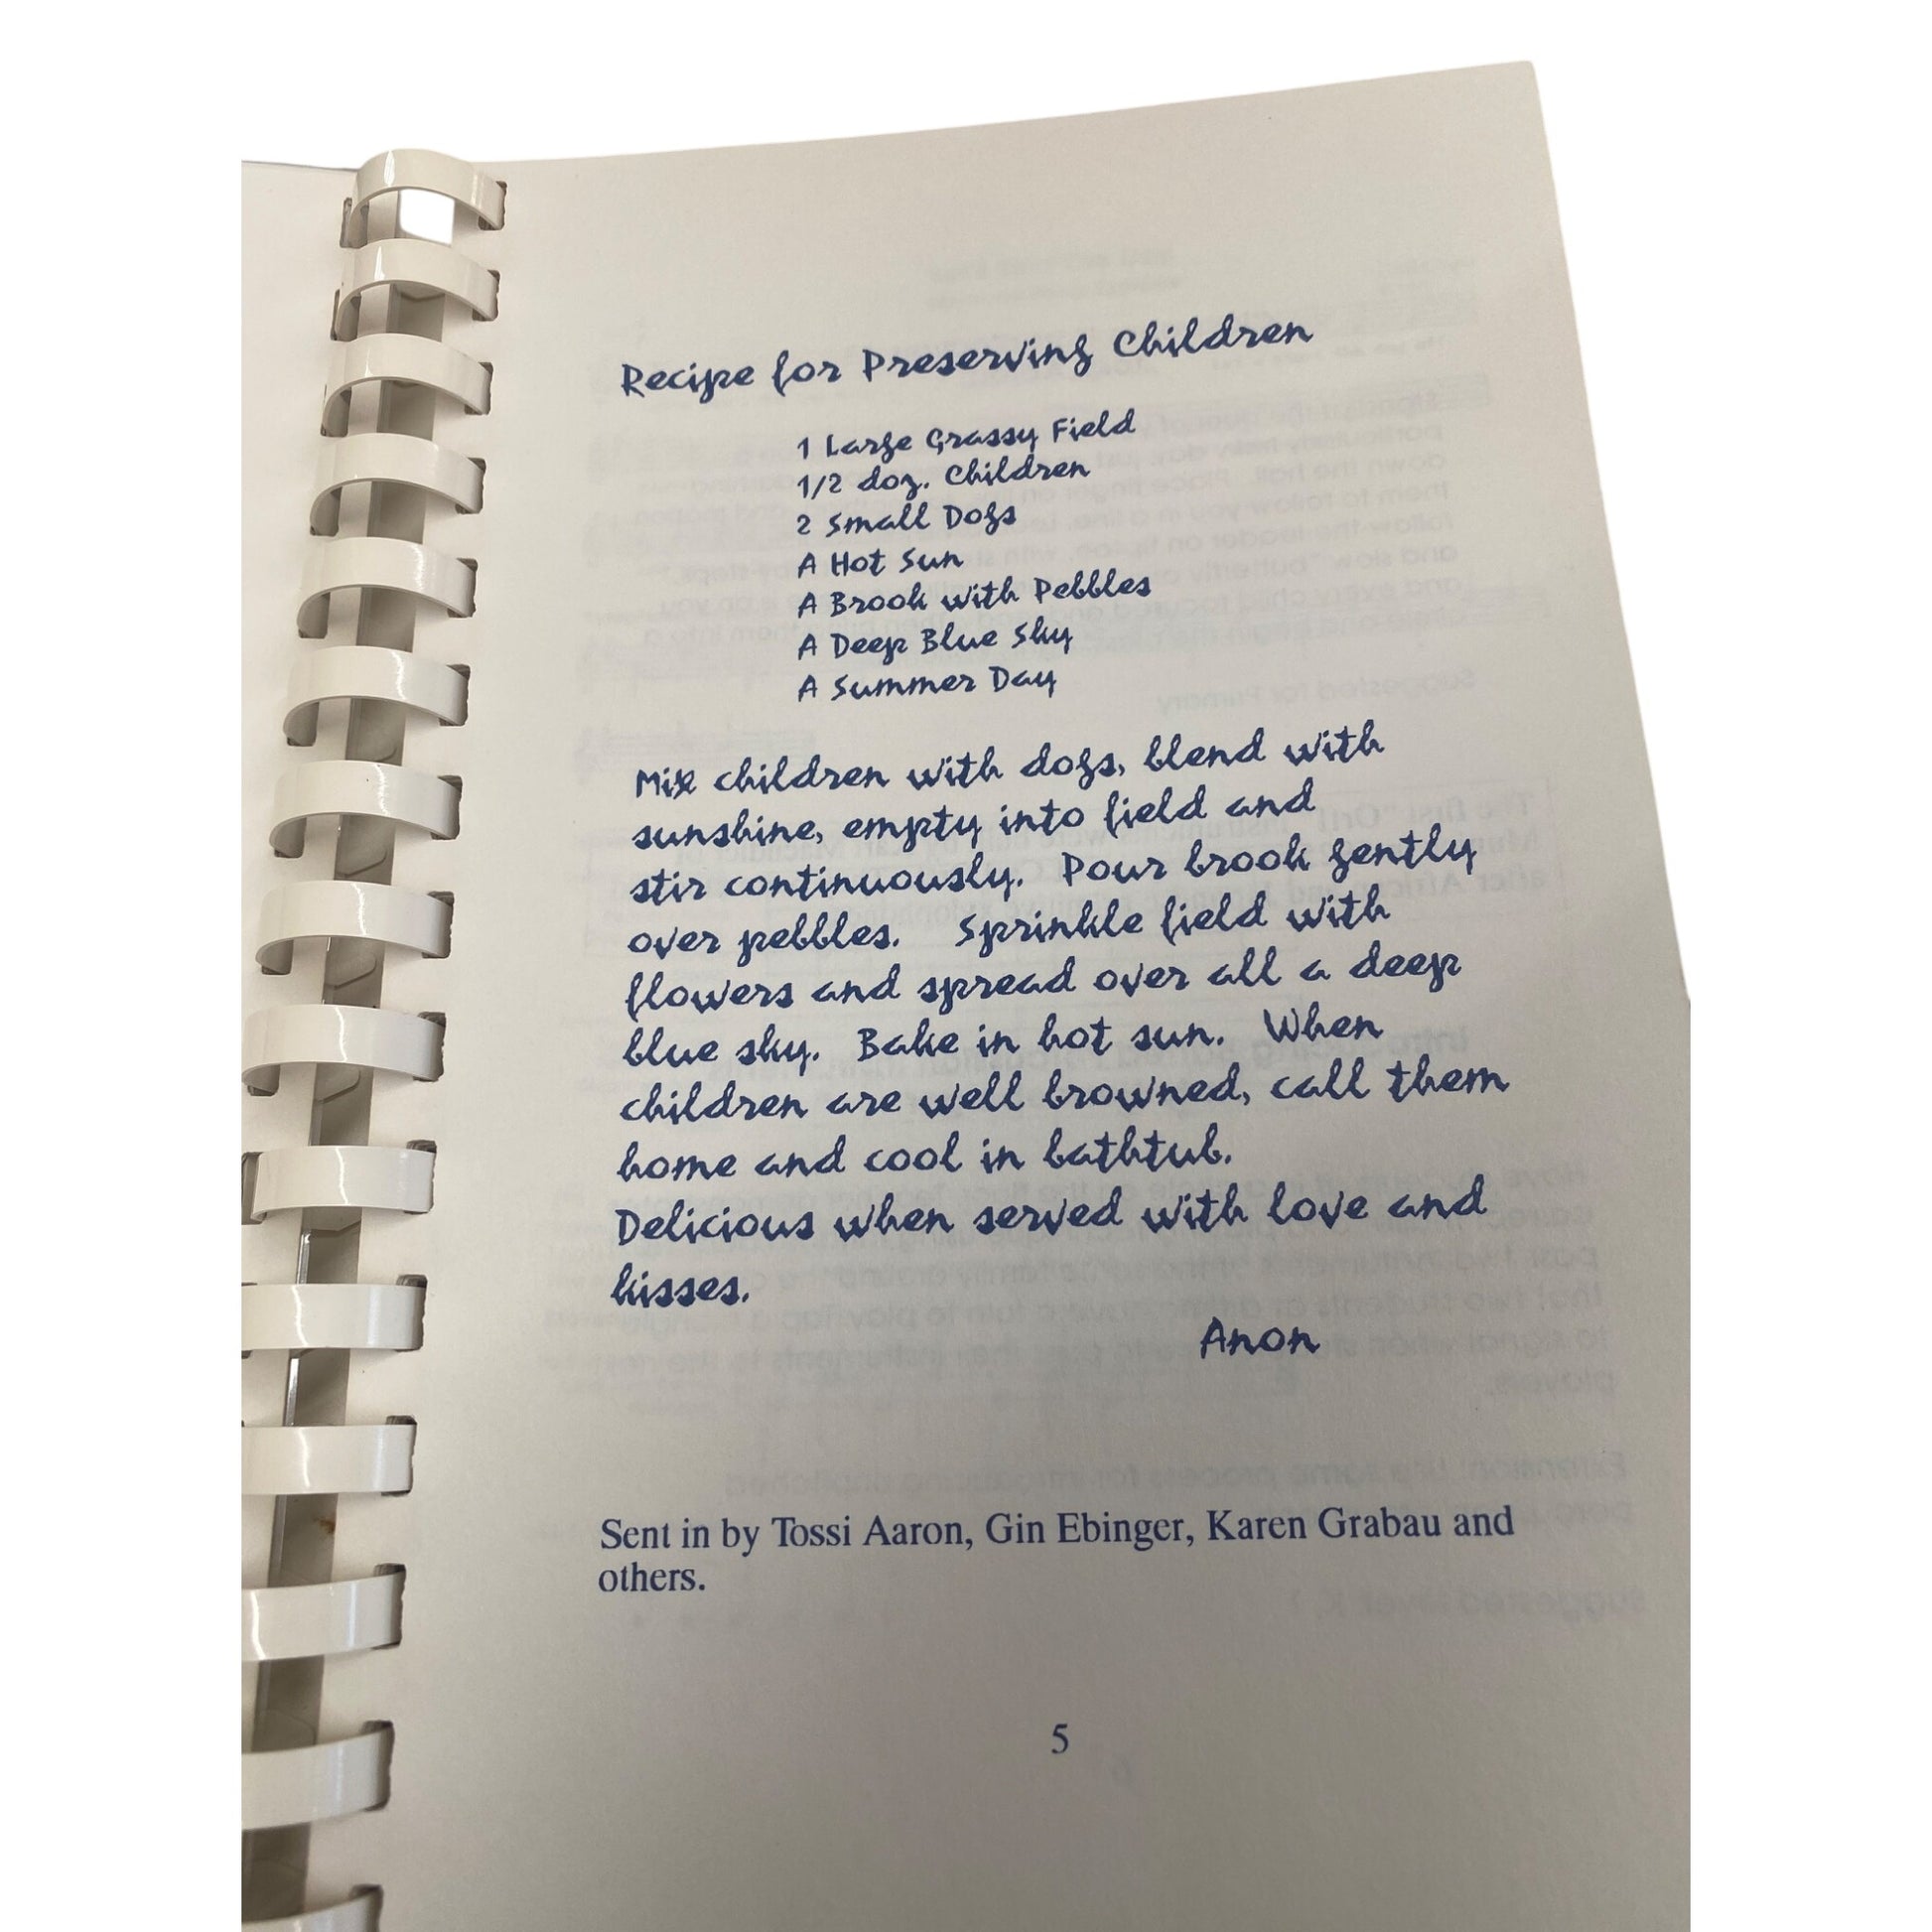 Recipe for Preserving Children
1 Large Grassy Field
1/2 doz. Children
2 Small Dogs
A Hot Sun
A Brook with Pebbles
A Deep Blue Sky
A Summer Day
Mix children with dogs, blend with
sunshine, empty into field and
stir continuously. Pour brook gently
over pebbles. Sprinkle field with
flowers and spread over all a deep
blue sky. Bake in hot sun. When
children are well browned, call them
home and cool in bathtub.
Delicious when served with love and
kisses.
Anon
Sent in by Tossi Aaron, Gin Ebinger, Karen Grabau and
others.
5